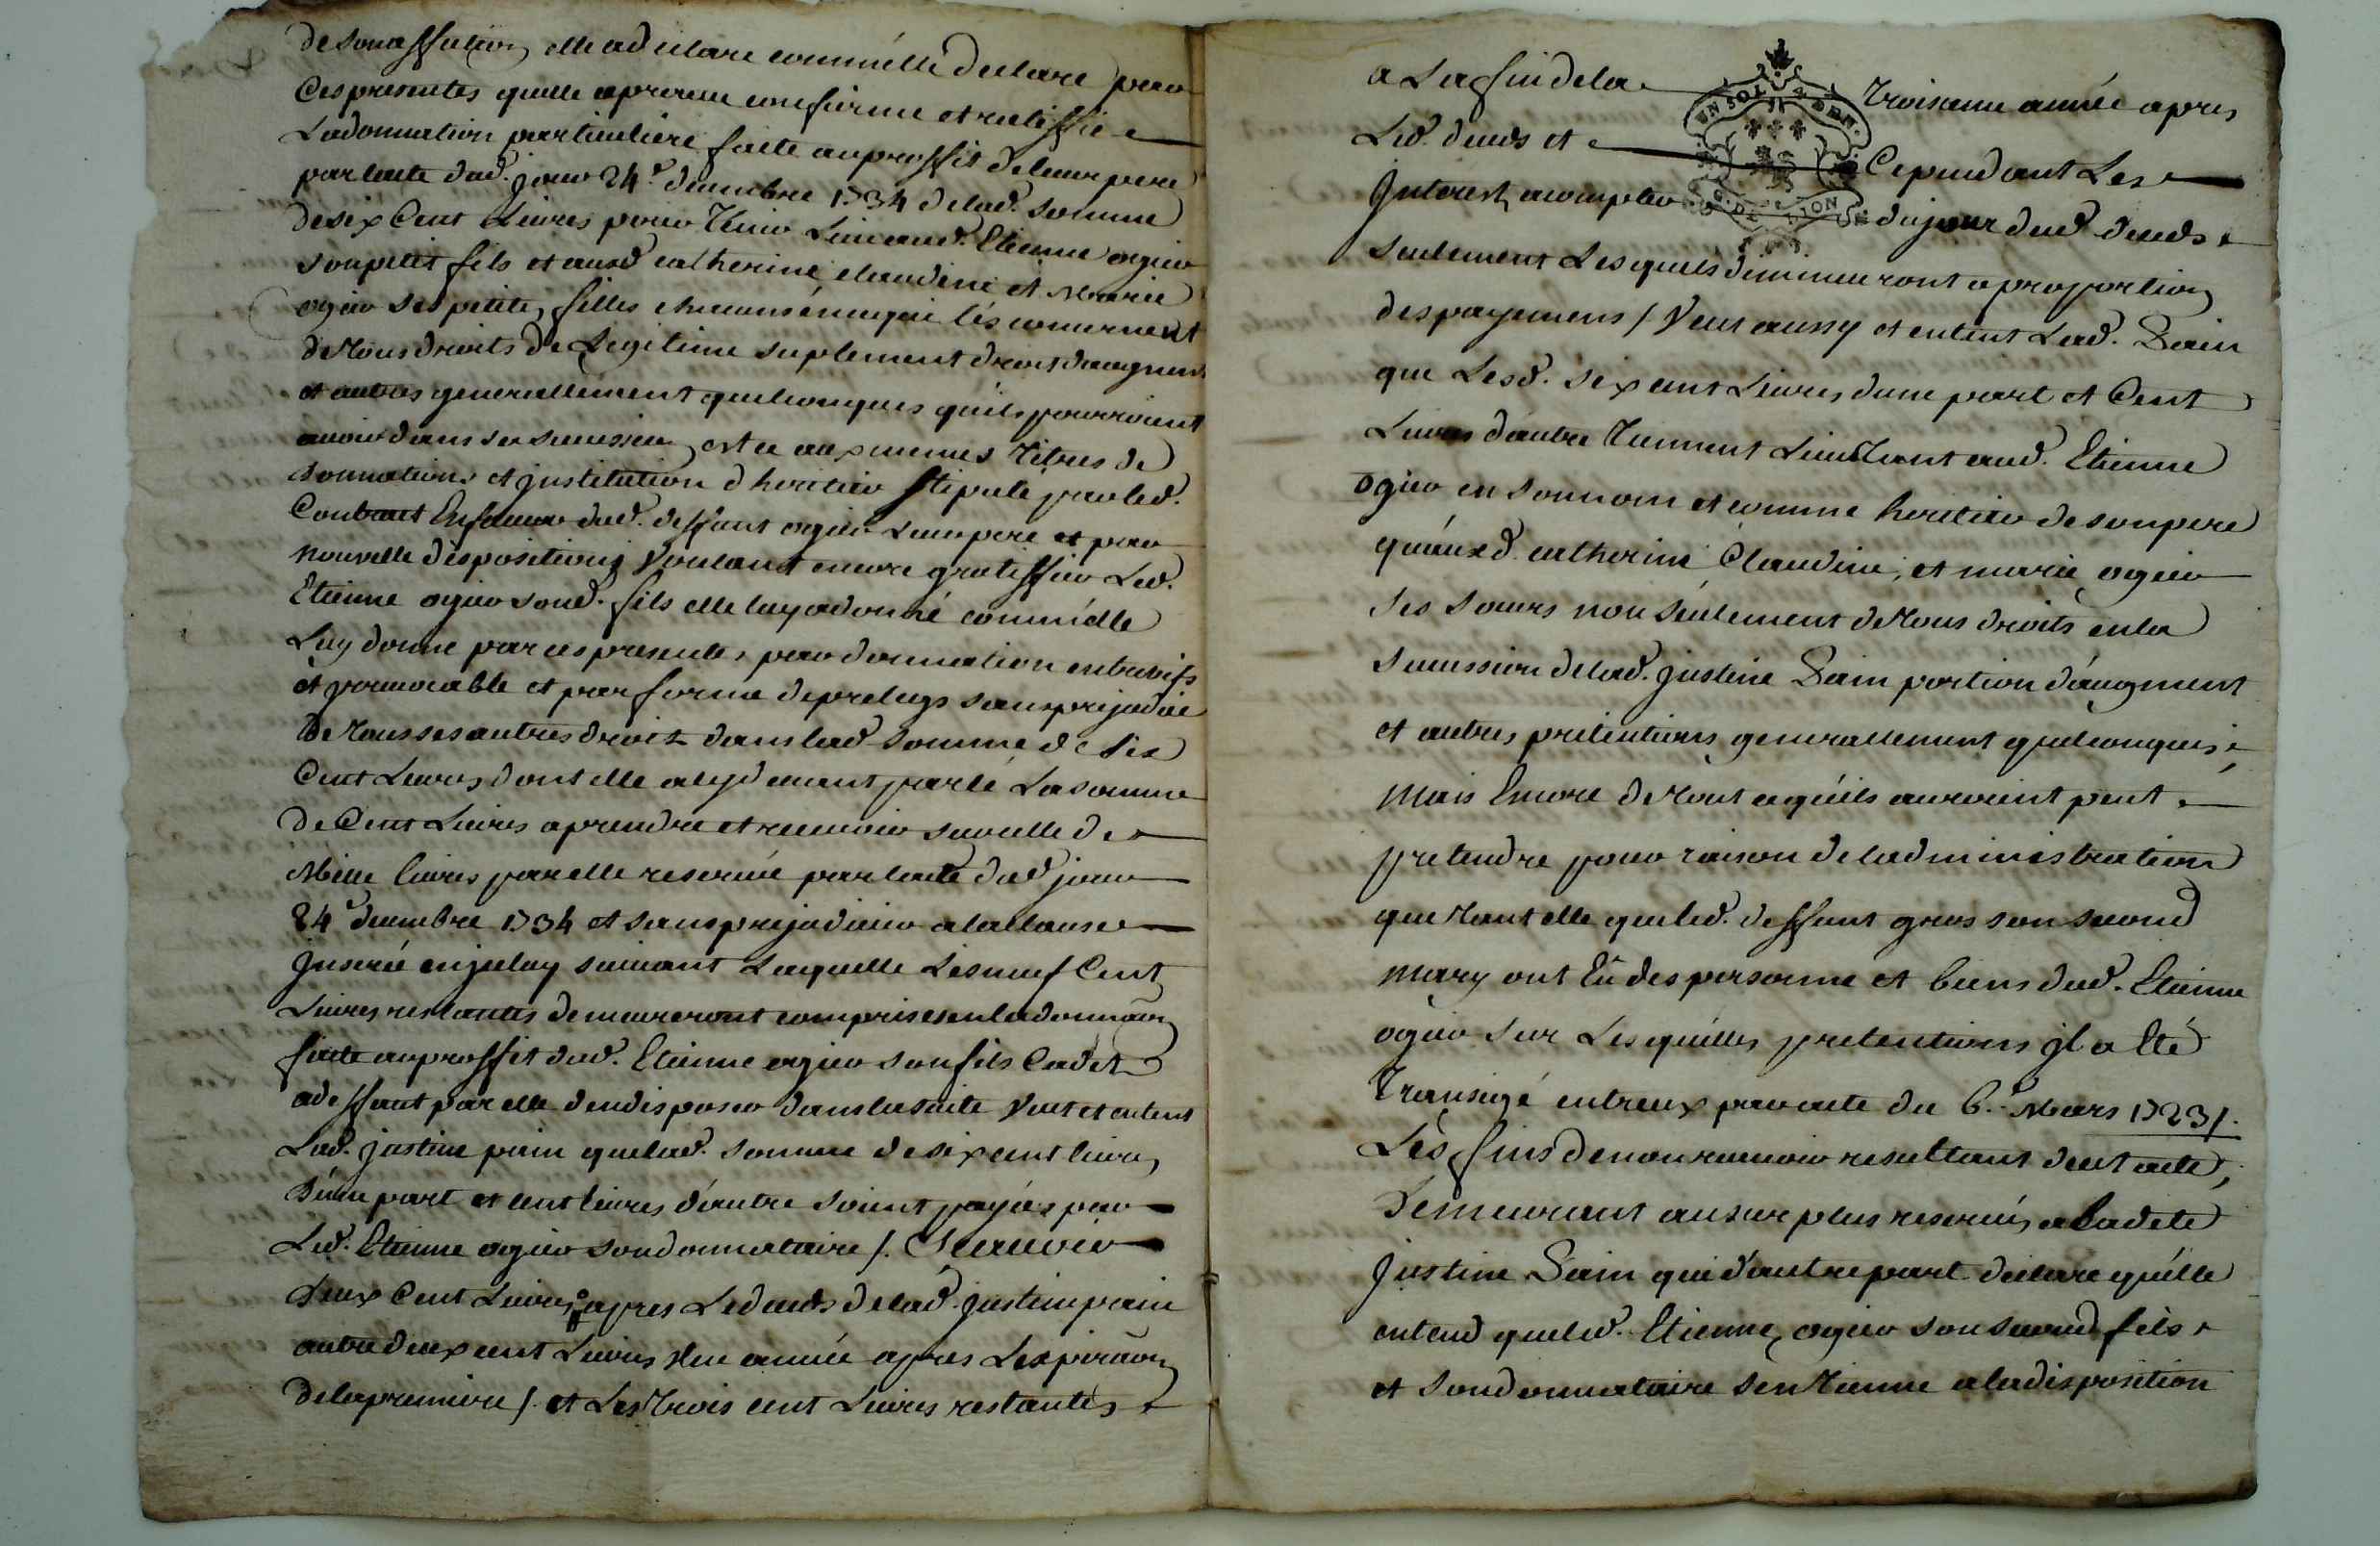 de son affection elle a declaré comme elle declare par
Ces presentes quelle aprouve confirme et ratiffie
La donnation particuliere faite au proffit de leur pere
par lacte dud. jour 24e decembre 1734 de lad. somme
de six Cent Livres pour tenir Lieu aud. Etienne ogier
son petit fils et ausd catherine, claudine et Marie
ogier ses petites filles chacuns en ce qui les concernent
de tous droits de Legitime suplement droit daugment
et autres generallement quelconques quils pourroient
avoir dans sa succession, et ce aux memes titres de
donnations et justitution d heritier stipulé par led.
Contract En faveur dud. deffunt ogier Leur pere et par
nouvelle dispositions voulant encore gratiffier Led.
Etienne ogier soud. fils elle luy a donné comme elle
Luy donne par ces presentes, par donnation entrevifs
et jrrevocable et par forme de prelegs sans prejudice
de tous ses autres droits dans lad somme de six
Cent Livres dont elle a cy devant parlé La somme
de Cent Livres a prendre et recevoir sur celle de
Mille livres par elle reservée par lacte dud jour
24e decembre 1734 et sans prejudicier a la clause
jnserée en jceluy suivant Laquelle Les neuf Cent
Livres restantes demeureront comprises en la donnaon
faite au proffit dud. Etienne ogier son fils Cadet
a deffaut par elle den disposer dans la suite veut et entent
Lad. justine pain que lad. somme de six cent livres
d'une part et cent livres d'autre soient payées par
Led. Etienne ogier son donnataire /. Scauoir
deux Cent Livres apres Le deceds de lad. justine pain
autre deux cent Livres Une année apres Lexpiraon
de la premiere /. et Les trois cent Livres restantes
a La fin de la troisieme année apres
Led. deceds et Cependant Les
jnterest a compter du jour dud deceds
seulement Lesquels diminueront a proportion
des payemens / Veut aussy et entent Lad. Pain
que Lesd. six cent Livres dune part et Cent
Livres d'autre tiennent Lieu tant aud. Etienne
ogier en son nom et comme heritier de son pere
qu'ausd. catherine Claudine, et marie ogier
ses sœurs non seulement de tous droits en la
succession de lad. justine Pain portion d'augment
et autres, pretentions generallement quelconques
Mais Encore de tout ce qu'ils auroient peut
pretendre pour raison de ladministration
que tant elle que led. deffunt gros son second
mary ont Eû des personne et biens dud. Etienne
ogier sur Lesquelles pretentions jl a Eté
transigé entreux par acte du 6.e Mars 1723 /.
Les fins de non recevoir resultant de cet acte,
demeurant au surplus reservées a Ladete
justine Pain qui d'autre part declare qu'elle
entend que led. Etienne, ogier son second fils
et son donnataire sen tienne a la disposition
UN SOL 4 DEN.
G. DE LION